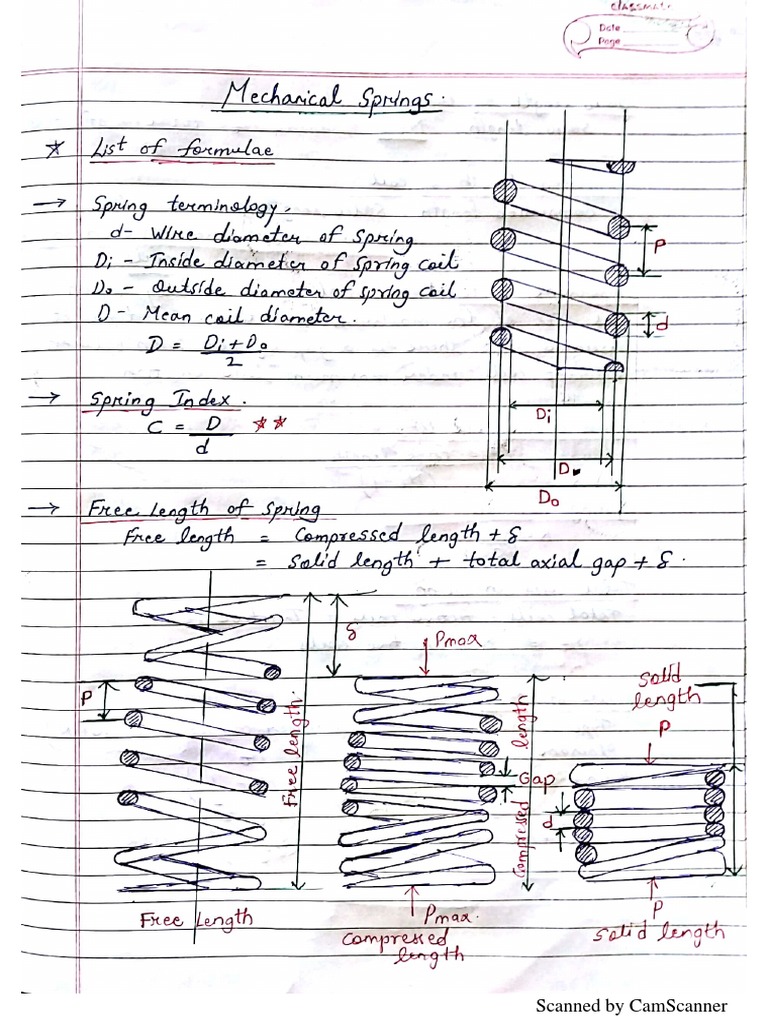 classmate
Date
Page
Mechanical Springs.
* List of formulae
→ Spring terminology.
d- Wire diameter of Spring
Di - Inside diameter of spring coil
Do - Outside diameter of spring coil
D - Mean coil diameter.
D = Di + Do / 2
P
d
→ Spring Index.
C = D / d **
Di
D
Do
→ Free Length of spring
Free length = Compressed length + δ
= Solid length + total axial gap + δ.
δ
Pmax
Solid
length
P
P
Free length
Compressed length
Gap
d
Free Length
Pmax.
Compressed
length
P
Solid length
Scanned by CamScanner